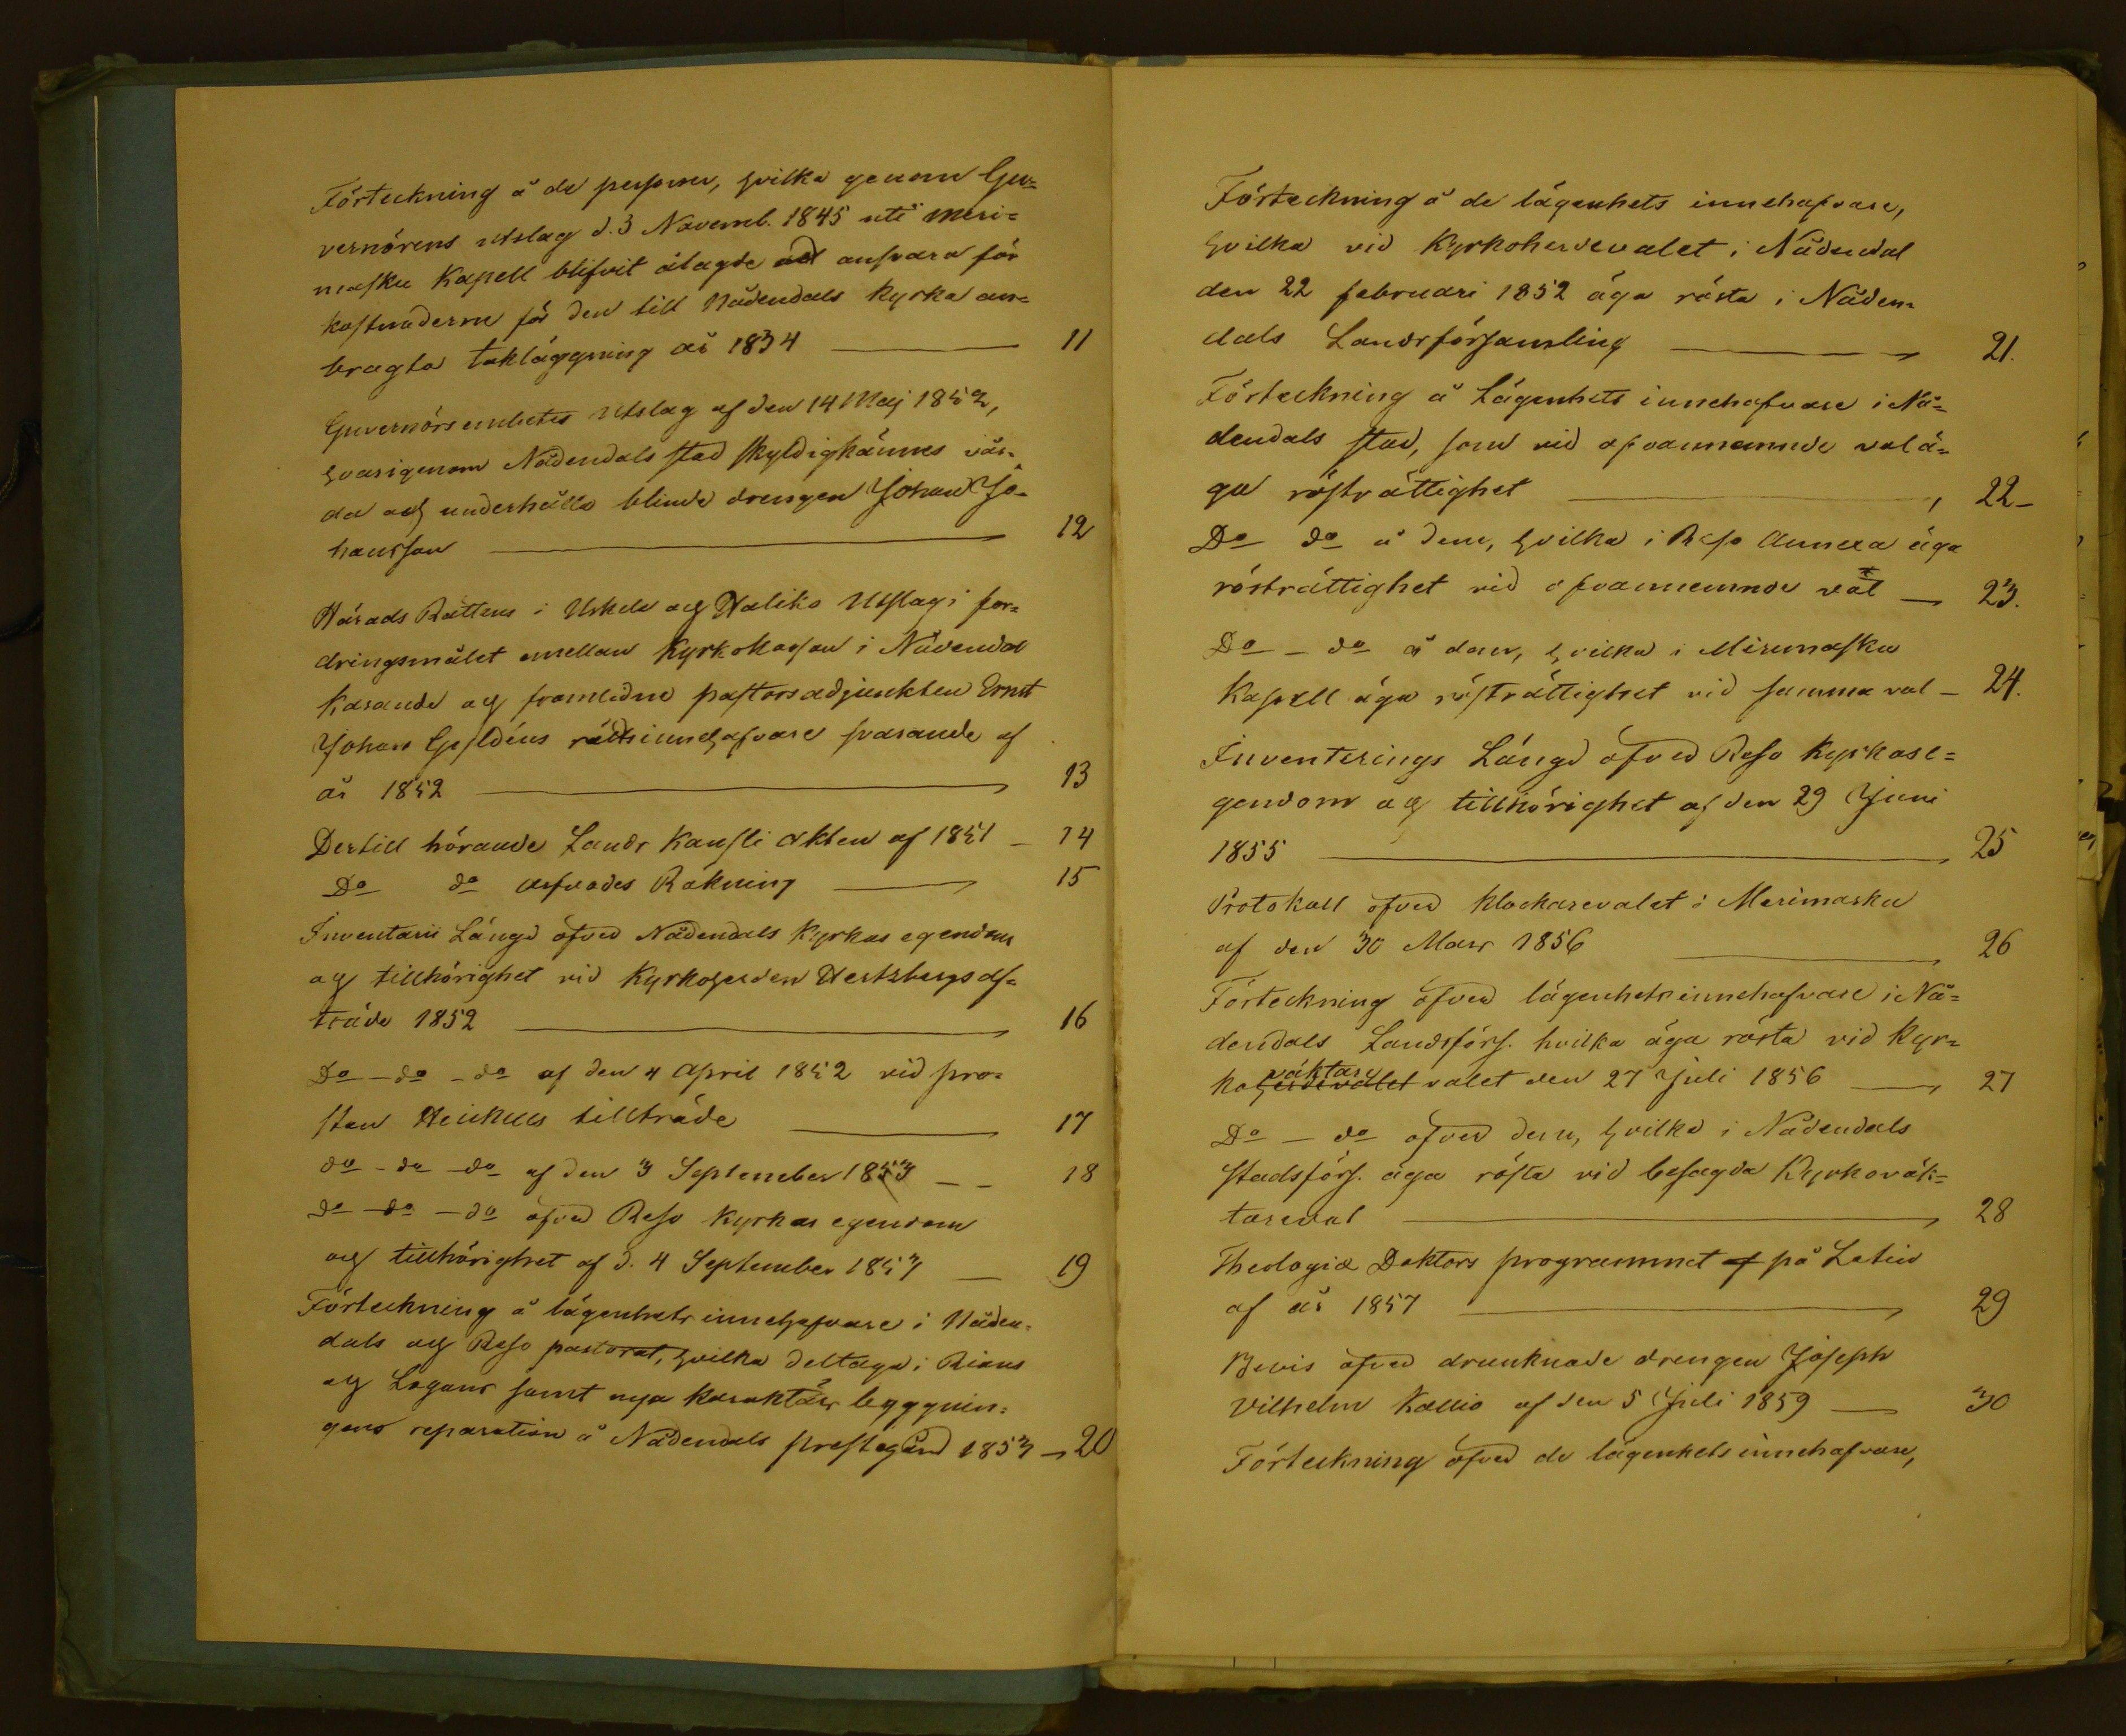 Förteckning å de personer, hvilka genom Gu=
vernörens utslag d. 3 Novemb. 1845 uti Meri=
masku Kapell blifvit ålagde att ansvara för
kostnaderne för den till Nådendals kyrka an=
bragta takläggning år 1834 — 11
Guvernörsembetes Utslag af den 14 Maj 1852,
hvarigenom Nådendals stad skyldigkännes vår=
da och underhålla blinde drengen Johan Jo=
hansson — 12
Härads Rättens i Uskela och Haliko Utslag i for=
dringsmålet emellan Kyrkokassan i Nådendal
kärande och framledne pastorsadjunkten Ernst
Johan Gyldéns rättsinnehafvare svarande af
år 1852 — 13
Dertill hörande Lands Kansli akten af 1851 — 14
Do do arfvodes Räkning — 15
Inventarii Längd öfver Nådendals Kyrkas egendom
och tillhörighet vid Kyrkoherden Hertzbergs af=
träde 1852 — 16
Do - do - do af den 4 April 1852 vid pro=
sten tillträde — 17
do - do - do af den 3 September 1853 — 18
do - do - do öfver Reso Kyrkas egendom
och tillhörighet af d. 4 September 1853 — 19
Förteckning å lägenhets innehafvare i Nåden=
dals och Reso pastorat, hvilka deltaga i Rians
och Logans samt nya karaktärs byggnin=
gens reparation å Nådendals prestegård 1853 — 20
Förteckning å de lägenhets innehafvare,
hvilka vid Kyrkoherdevalet i Nådendal
den 22 februari 1852 äga rösta i Nåden=
dals Landsförsamling — 21.
Förteckning å Lägenhets innehafvare i Nå=
dendals stad, som vid ofvannemnde val ä=
ga rösträttighet — 22
Do do å dem, hvilka i Reso Annexa äga
rösträttighet vid ofvannemnde val — 23.
Do - do å dem, hvilka i Merimasku
Kapell äga rösträttighet vid samma val — 24.
Inventerings Längd öfver Reso Kyrkas e=
gendom och tillhörighet af den 29 Juni
1855 — 25
Protokoll öfver klockarevalet i Merimasku
af den 30 Mars 1856 — 26
Förteckning öfver lägenhetsinnehafvare i Nå=
dendals Landsförs. hvilka äga rösta vid Kyr=
koherdevalet väktare valet den 27 Juli 1856 — 27
Do - do öfver dem, hvilka i Nådendals
stadsförs. äga rösta vid besagda Kyrkoväk=
tareval — 28
Theologiæ Doktors programmet af på Latin
af år 1857 — 29
Bevis öfver drunknade drengen Joseph
Vilhelm Kallio af den 5 Juli 1859 — 30
Förteckning öfver de lägenhetsinnehafvare,